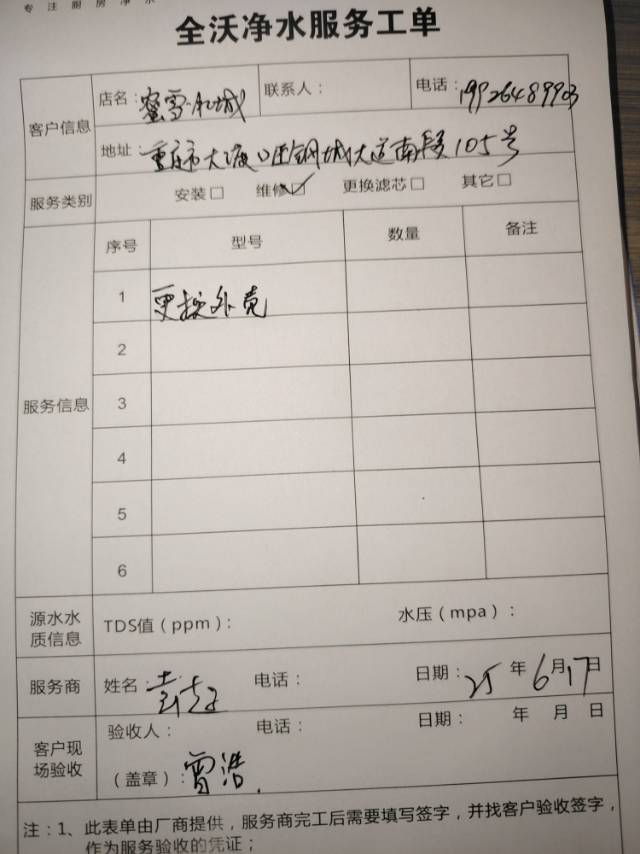 专注厨房净水
全沃净水服务工单
客户信息
店名：蜜雪冰城 联系人： 电话：19926489903
地址：重庆市大渡口区钢城大道南段105号
服务类别 安装□ 维修☑ 更换滤芯□ 其它□
服务信息
序号 型号 数量 备注
1 更换外壳
2
3
4
5
6
源水水质信息 TDS值（ppm）： 水压（mpa）：
服务商 姓名： 电话： 日期：25年6月17日
客户现场验收
验收人： 电话： 日期： 年 月 日
（盖章）：曾浩
注：1、此表单由厂商提供，服务商完工后需要填写签字，并找客户验收签字，
作为服务验收的凭证；